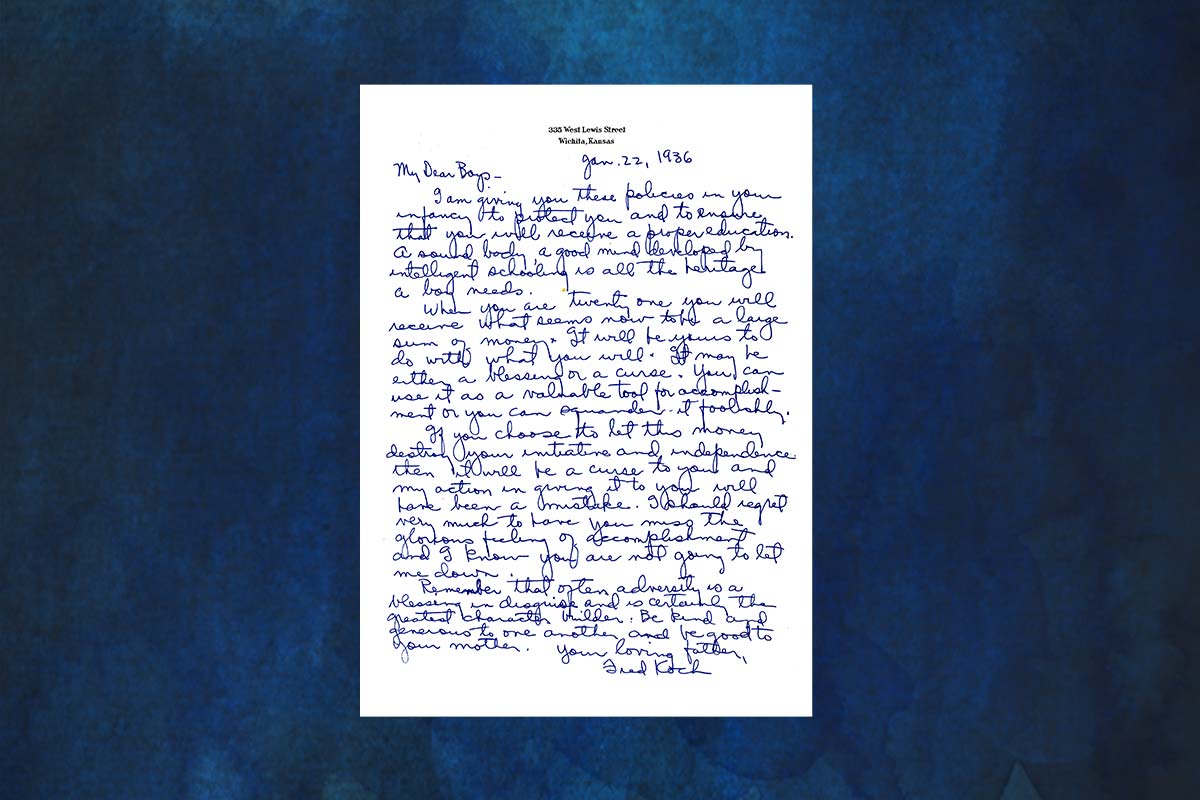 335 West Lewis Street
Wichita, Kansas
Jan. 22, 1936
My Dear Boys-
I am giving you these policies in your
infancy to protect you and to ensure
that you will receive a proper education.
A sound body, a good mind developed by
intelligent schooling is all the heritage
a boy needs.
When you are twenty one you will
receive what seems now to be a large
sum of money. It will be yours to
do with what you will. It may be
either a blessing or a curse. You can
use it as a valuable tool for accomplish-
ment or you can squander it foolishly.
If you choose to let this money
destroy your initiative and independence
then it will be a curse to you and
my action in giving it to you will
have been a mistake. I should regret
very much to have you miss the
glorious feeling of accomplishment
and I know you are not going to let
me down.
Remember that often adversity is a
blessing in disguise and is certainly the
greatest character builder. Be kind and
generous to one another and be good to
your mother. Your loving father,
Fred Koch